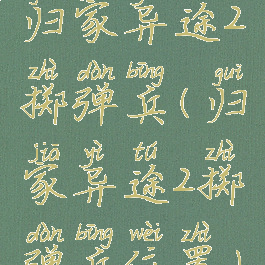 归家异途2
zhì dàn bīng guī
掷弹兵(归
jiā yì tú zhì
家异途2掷
dàn bīng wèi zhì
弹兵位置)